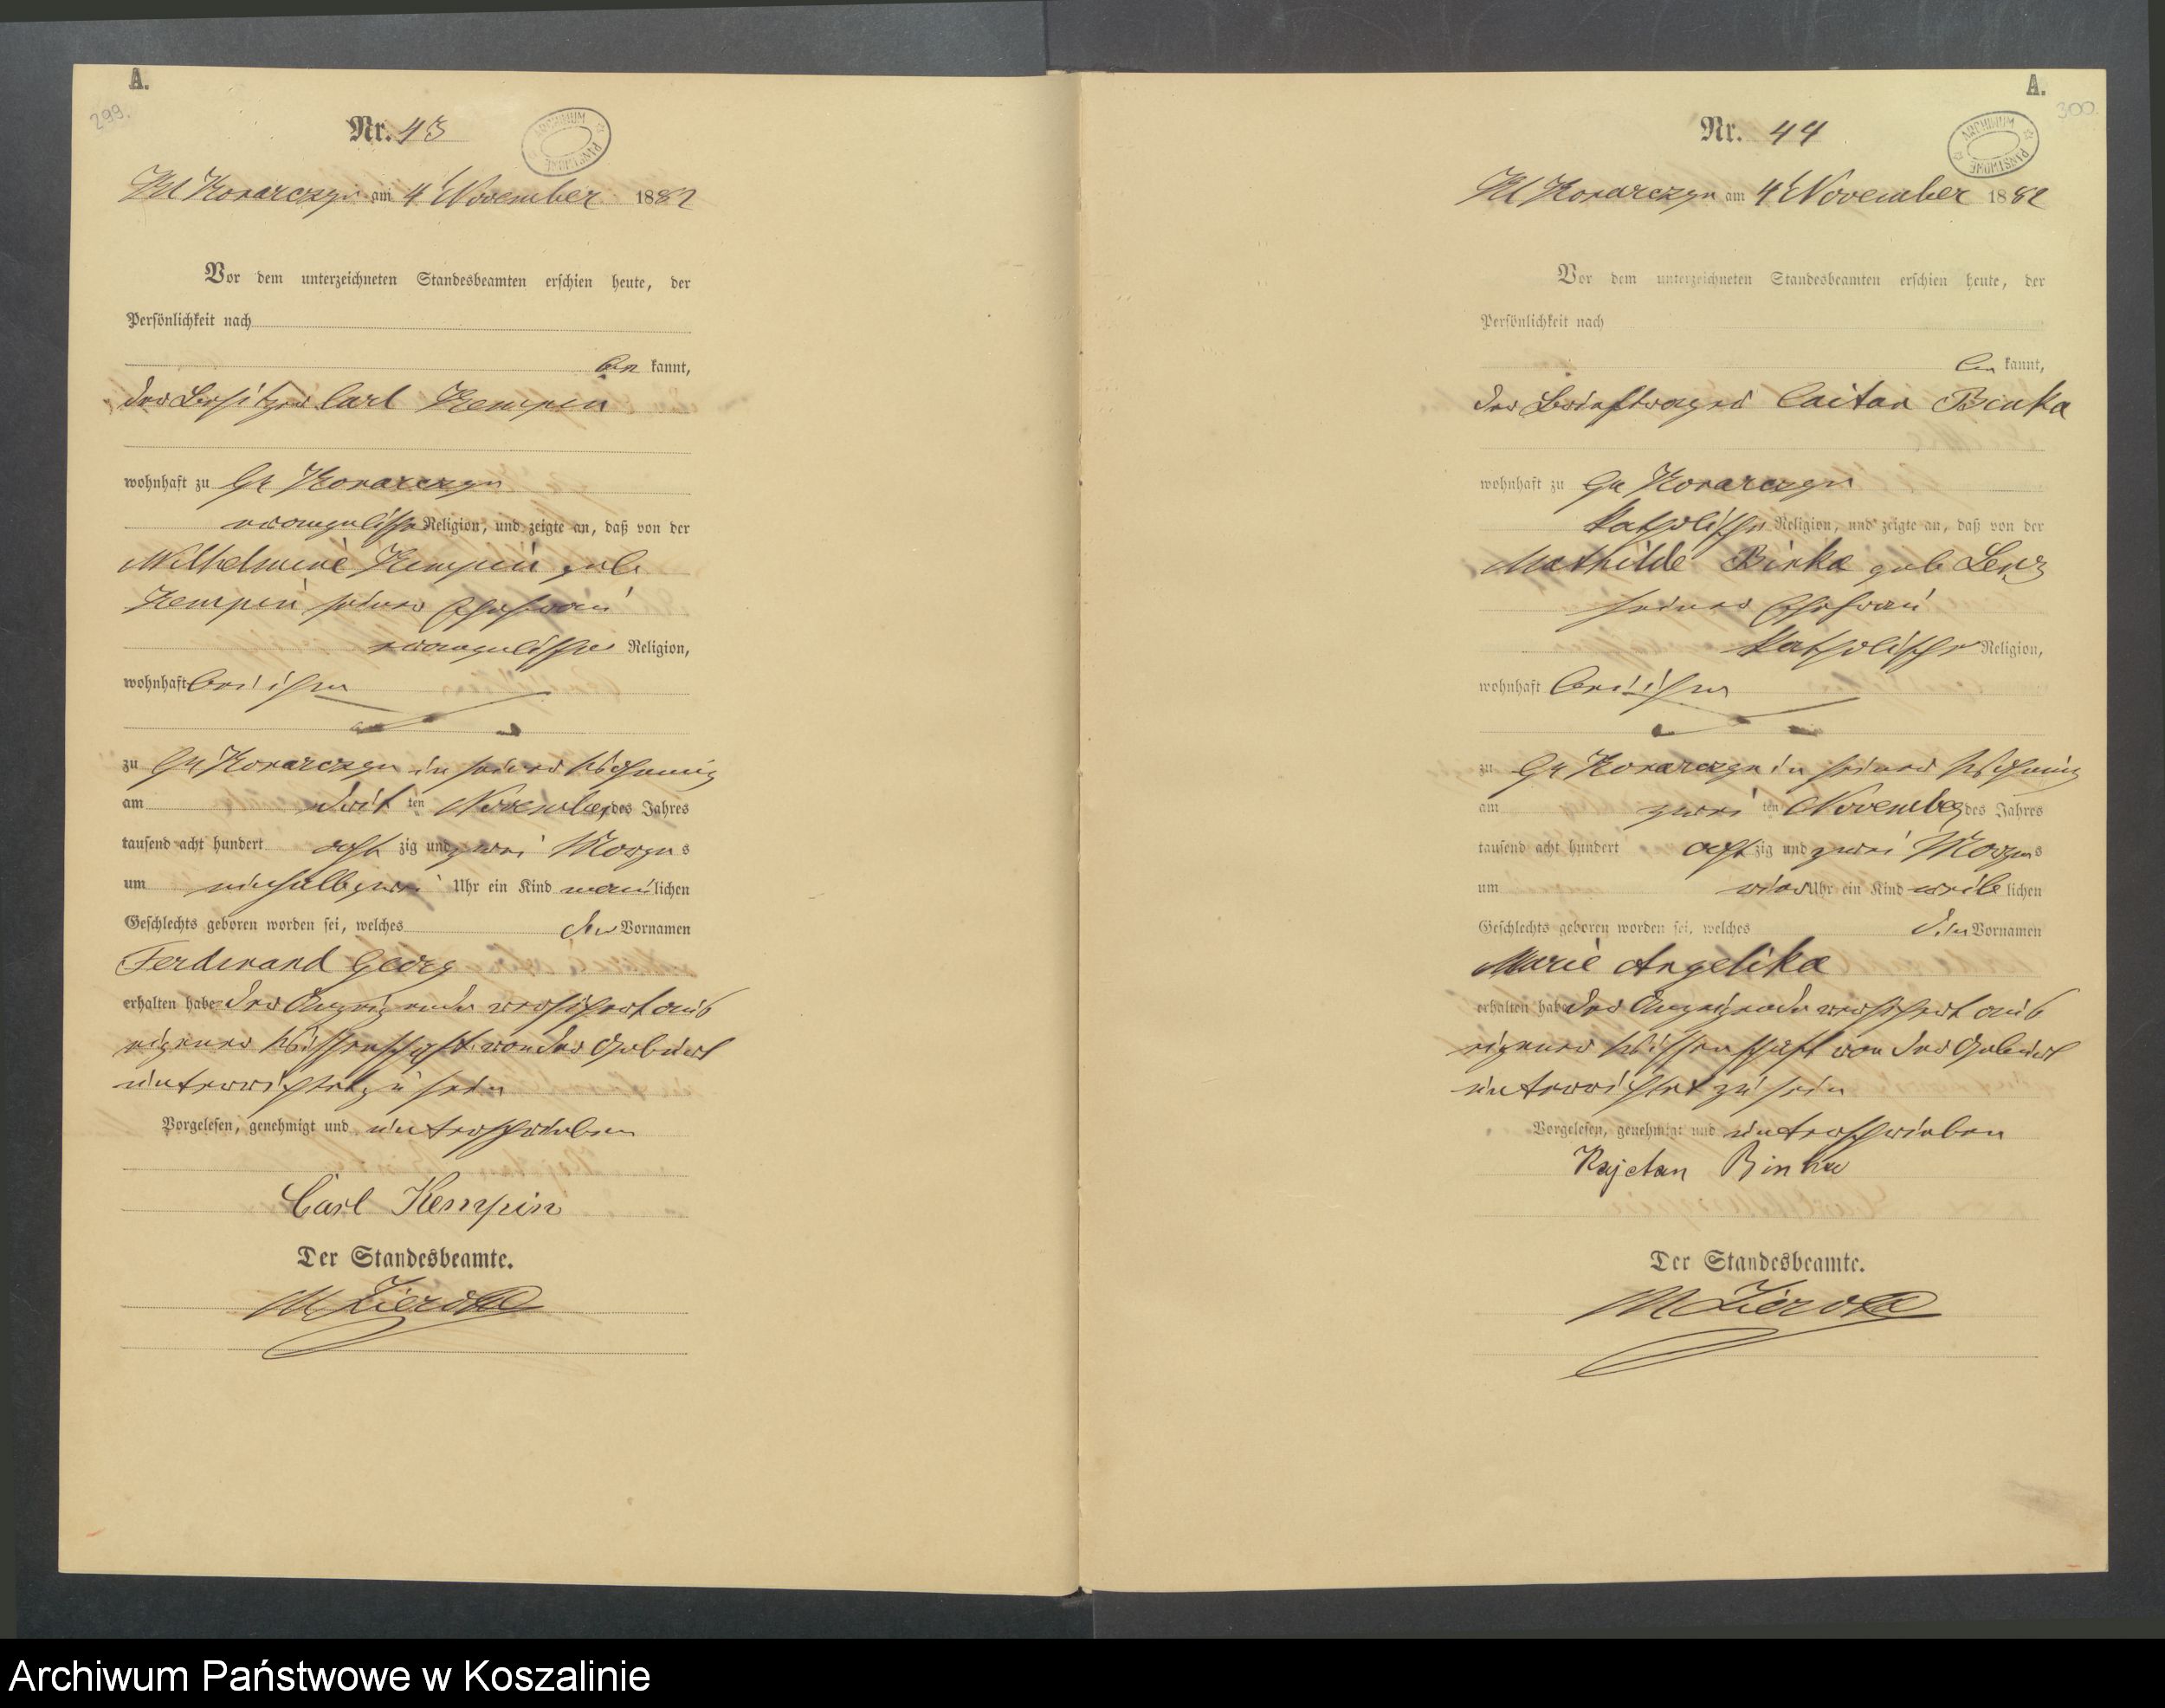 A.
299.
Nr. 43
ARCHIWUM PAŃSTWOWE
Kl Konarczyn am 4t November 1882
Vor dem unterzeichneten Standesbeamten erschien heute, der
Persönlichkeit nach
be kannt,
der Besitzer Carl Kempin
wohnhaft zu Gr Konarczyn
evangelischer Religion, und zeigte an, daß von der
Wilhelmine Kempin geb
Kempin seiner Ehefrau
evangelischer Religion,
wohnhaft bei ihm
zu Gr Konarczyn in seiner Wohnung
am drit ten November des Jahres
tausend acht hundert acht zig und zwei Morgens
um einhalbzwei Uhr ein Kind männlichen
Geschlechts geboren worden sei, welches den Vornamen
Ferdinand Georg
erhalten habe der Anzeigende versichert aus
eigener Wissenschaft von der Geburt
unterrichtet zu sein
Vorgelesen, genehmigt und unterschrieben
Carl Kempin
Der Standesbeamte.
A.
300.
Nr. 44
ARCHIWUM PAŃSTWOWE
Kl Konarczyn am 4t November 1882
Vor dem unterzeichneten Standesbeamten erschien heute, der
Persönlichkeit nach
be kannt,
der Briefträger Caitan Binka
wohnhaft zu Gr Konarczyn
katholischer Religion, und zeigte an, daß von der
Mathilde Binka geb
seiner Ehefrau
katholischer Religion,
wohnhaft bei ihm
zu Gr Konarczyn in seiner Wohnung
am zwei ten November des Jahres
tausend acht hundert acht zig und zwei Morgens
um vier Uhr ein Kind weib lichen
Geschlechts geboren worden sei, welches den Vornamen
Marie Angelika
erhalten habe der Anzeigende versichert aus
eigener Wissenschaft von der Geburt
unterrichtet zu sein
Vorgelesen, genehmigt und unterschrieben
Kajetan Binka
Der Standesbeamte.
Archiwum Państwowe w Koszalinie